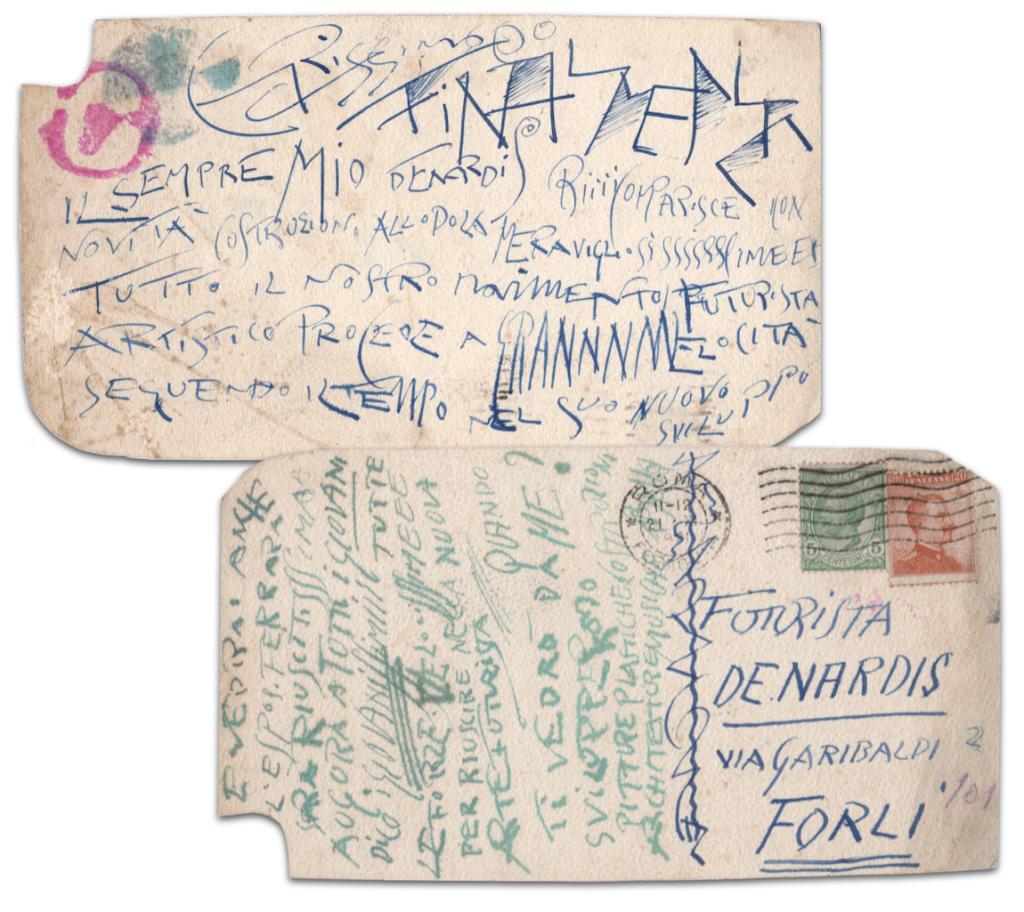 Carissimo
FINALMENTE
IL SEMPRE MIO DENARDIS RiiiiCOMPARISCE CON
NOVITÀ COSTRUZIONI ALLODOLA MERAVIGLiOSiSSSSSSSIME E
TUTTO IL NOSTRO MOVIMENTO FUTURISTA
ARTISTICO PROCEDE A GRANNNNNNE VELOCITÀ
SEGUENDO IL TEMPO NEL SUO NUOVO
SVILUPPO
E VEDRAI ANCHE
L'ESPOS. FERRARA
SARA RIUSCITISSIMA
AUGURA A TUTTI I GIOVANI
DICO GIOVANISSIMI TUTTE
LE FORZE VELOCISSIMEEE
PER RIUSCIRE NELLA NUOVA
ARTE FUTURISTA QUANDO
TI VEDRÒ DA ME?
SVILUPPERO
PITTURE PLASTICHE
ARCHITETTURE
ROMA
11-12
21
FUTURISTA
DENARDIS
VIA GARIBALDI 2
FORLI'
5 CENTESIMI 5